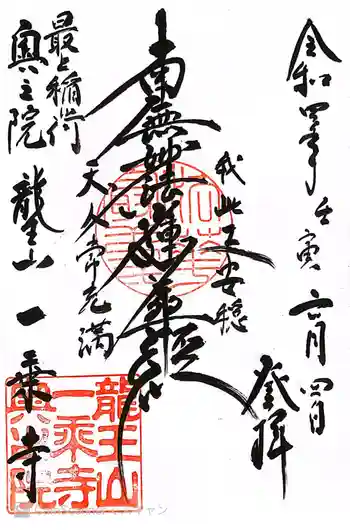 令和四年壬寅 六月四日
登拝
我此土安穏
南無妙法蓮華経
天人常充満
最上稲荷
奥之院 龍王山 一乗寺
龍王山
一乗寺
奥之院